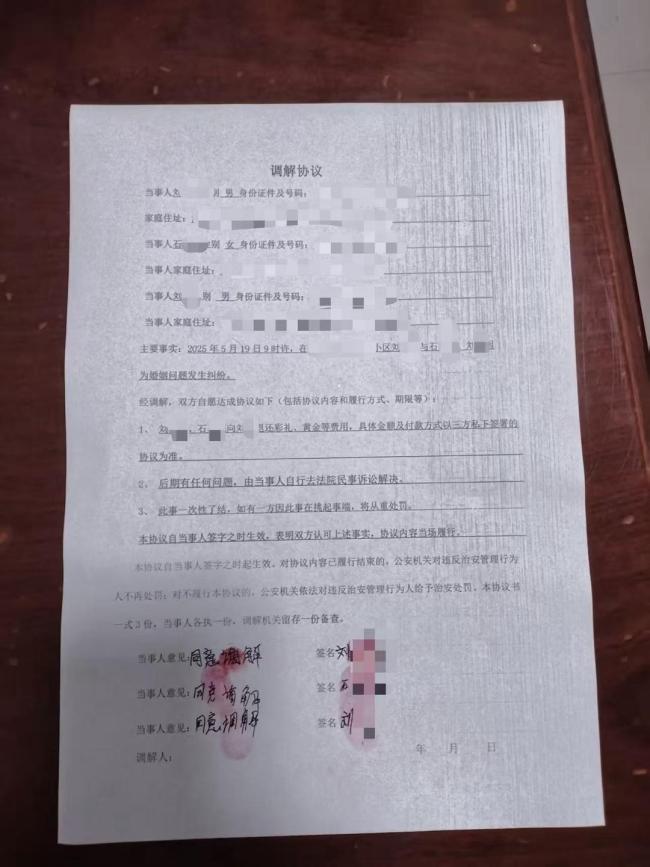 调解协议
当事人刘 别 男 身份证件及号码：
家庭住址：
当事人石 别 女 身份证件及号码：
当事人家庭住址：
当事人刘 别 男 身份证件及号码：
当事人家庭住址：
主要事实：2025年5月19日9时许，在 小区刘 与石 刘
为婚姻问题发生纠纷。
经调解，双方自愿达成协议如下（包括协议内容和履行方式、期限等）：
1、 刘 、石 向刘 还彩礼、黄金等费用，具体金额及付款方式以三方私下签署的
协议为准。
2、 后期有任何问题，由当事人自行去法院民事诉讼解决。
3、 此事一次性了结，如有一方因此事在挑起事端，将从重处罚。
本协议自当事人签字之时生效，表明双方认可上述事实，协议内容当场履行。
本协议自当事人签字之时起生效。对协议内容已履行结束的，公安机关对违反治安管理行为
人不再处罚；对不履行本协议的，公安机关依法对违反治安管理行为人给予治安处罚。本协议书
一式3份，当事人各执一份，调解机关留存一份备查。
当事人意见：同意调解 签名 刘
当事人意见：同意调解 签名 石
当事人意见：同意调解 签名 刘
年 月 日
调解人：